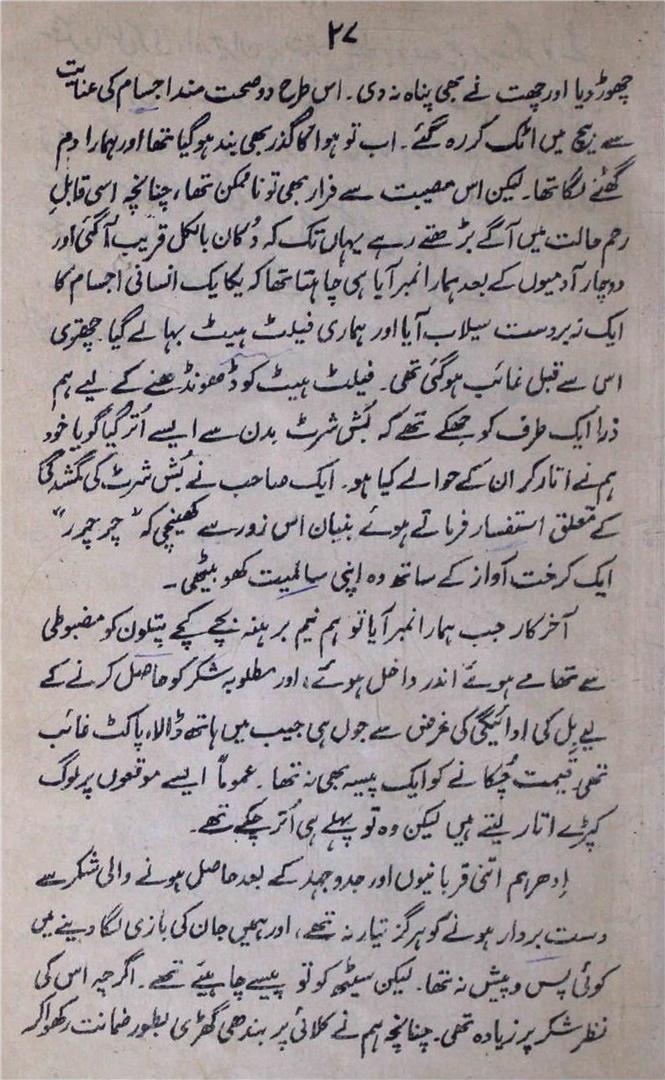 ۲۷
چھوڑ دیا اور چھت نے بھی پناہ نہ دی۔ اس طرح دو صحت مند اجسام کی عنایت
سے بیچ میں اٹک کر رہ گئے۔ اب تو ہوا کا گذر بھی بند ہو گیا تھا اور ہمارا دم
گھٹنے لگا تھا۔ لیکن اس مصیبت سے فرار بھی تو ناممکن تھا، چنانچہ اسی قابلِ
رحم حالت میں آگے بڑھتے رہے یہاں تک کہ دُکان بالکل قریب آ گئی اور
دو چار آدمیوں کے بعد ہمارا نمبر آیا ہی چاہتا تھا کہ یکایک انسانی اجسام کا
ایک زبردست سیلاب آیا اور ہماری فیلٹ ہیٹ بہا لے گیا۔ چھتری
اس سے قبل غائب ہو گئی تھی۔ فیلٹ ہیٹ کو ڈھونڈھنے کے لیے ہم
ذرا ایک طرف کو جھکے تھے کہ بُش شرٹ بدن سے ایسے اُتر گیا گویا خود
ہم نے اتار کر ان کے حوالے کیا ہو۔ ایک صاحب نے بُش شرٹ کی گمشدگی
کے متعلق استفسار فرماتے ہوئے بنیان اس زور سے کھینچی کہ "چر چرر"
ایک کرخت آواز کے ساتھ وہ اپنی سالمیت کھو بیٹھی۔
آخر کار جب ہمارا نمبر آیا تو ہم نیم برہنہ بچے کھچے پتلون کو مضبوطی
سے تھامے ہوئے اندر داخل ہوئے، اور مطلوبہ شکر کو حاصل کرنے کے
لیے بِل کی ادائیگی کی غرض سے جوں ہی جیب میں ہاتھ ڈالا، پاکٹ غائب
تھی قیمت چُکانے کو ایک پیسہ بھی نہ تھا۔ عموماً ایسے موقعوں پر لوگ
کپڑے اتار لیتے ہیں لیکن وہ تو پہلے ہی اُتر چکے تھے۔
اِدھر ہم اتنی قربانیوں اور جدوجہد کے بعد حاصل ہونے والی شکر سے
دست بردار ہونے کو ہرگز تیار نہ تھے، اور ہمیں جان کی بازی لگا دینے میں
کوئی پس و پیش نہ تھا۔ لیکن سیٹھ کو تو پیسے چاہیئے تھے۔ اگرچہ اس کی
نظر شکر پر زیادہ تھی۔ چنانچہ ہم نے کلائی پر بندھی گھڑی بطور ضمانت رکھوا کر